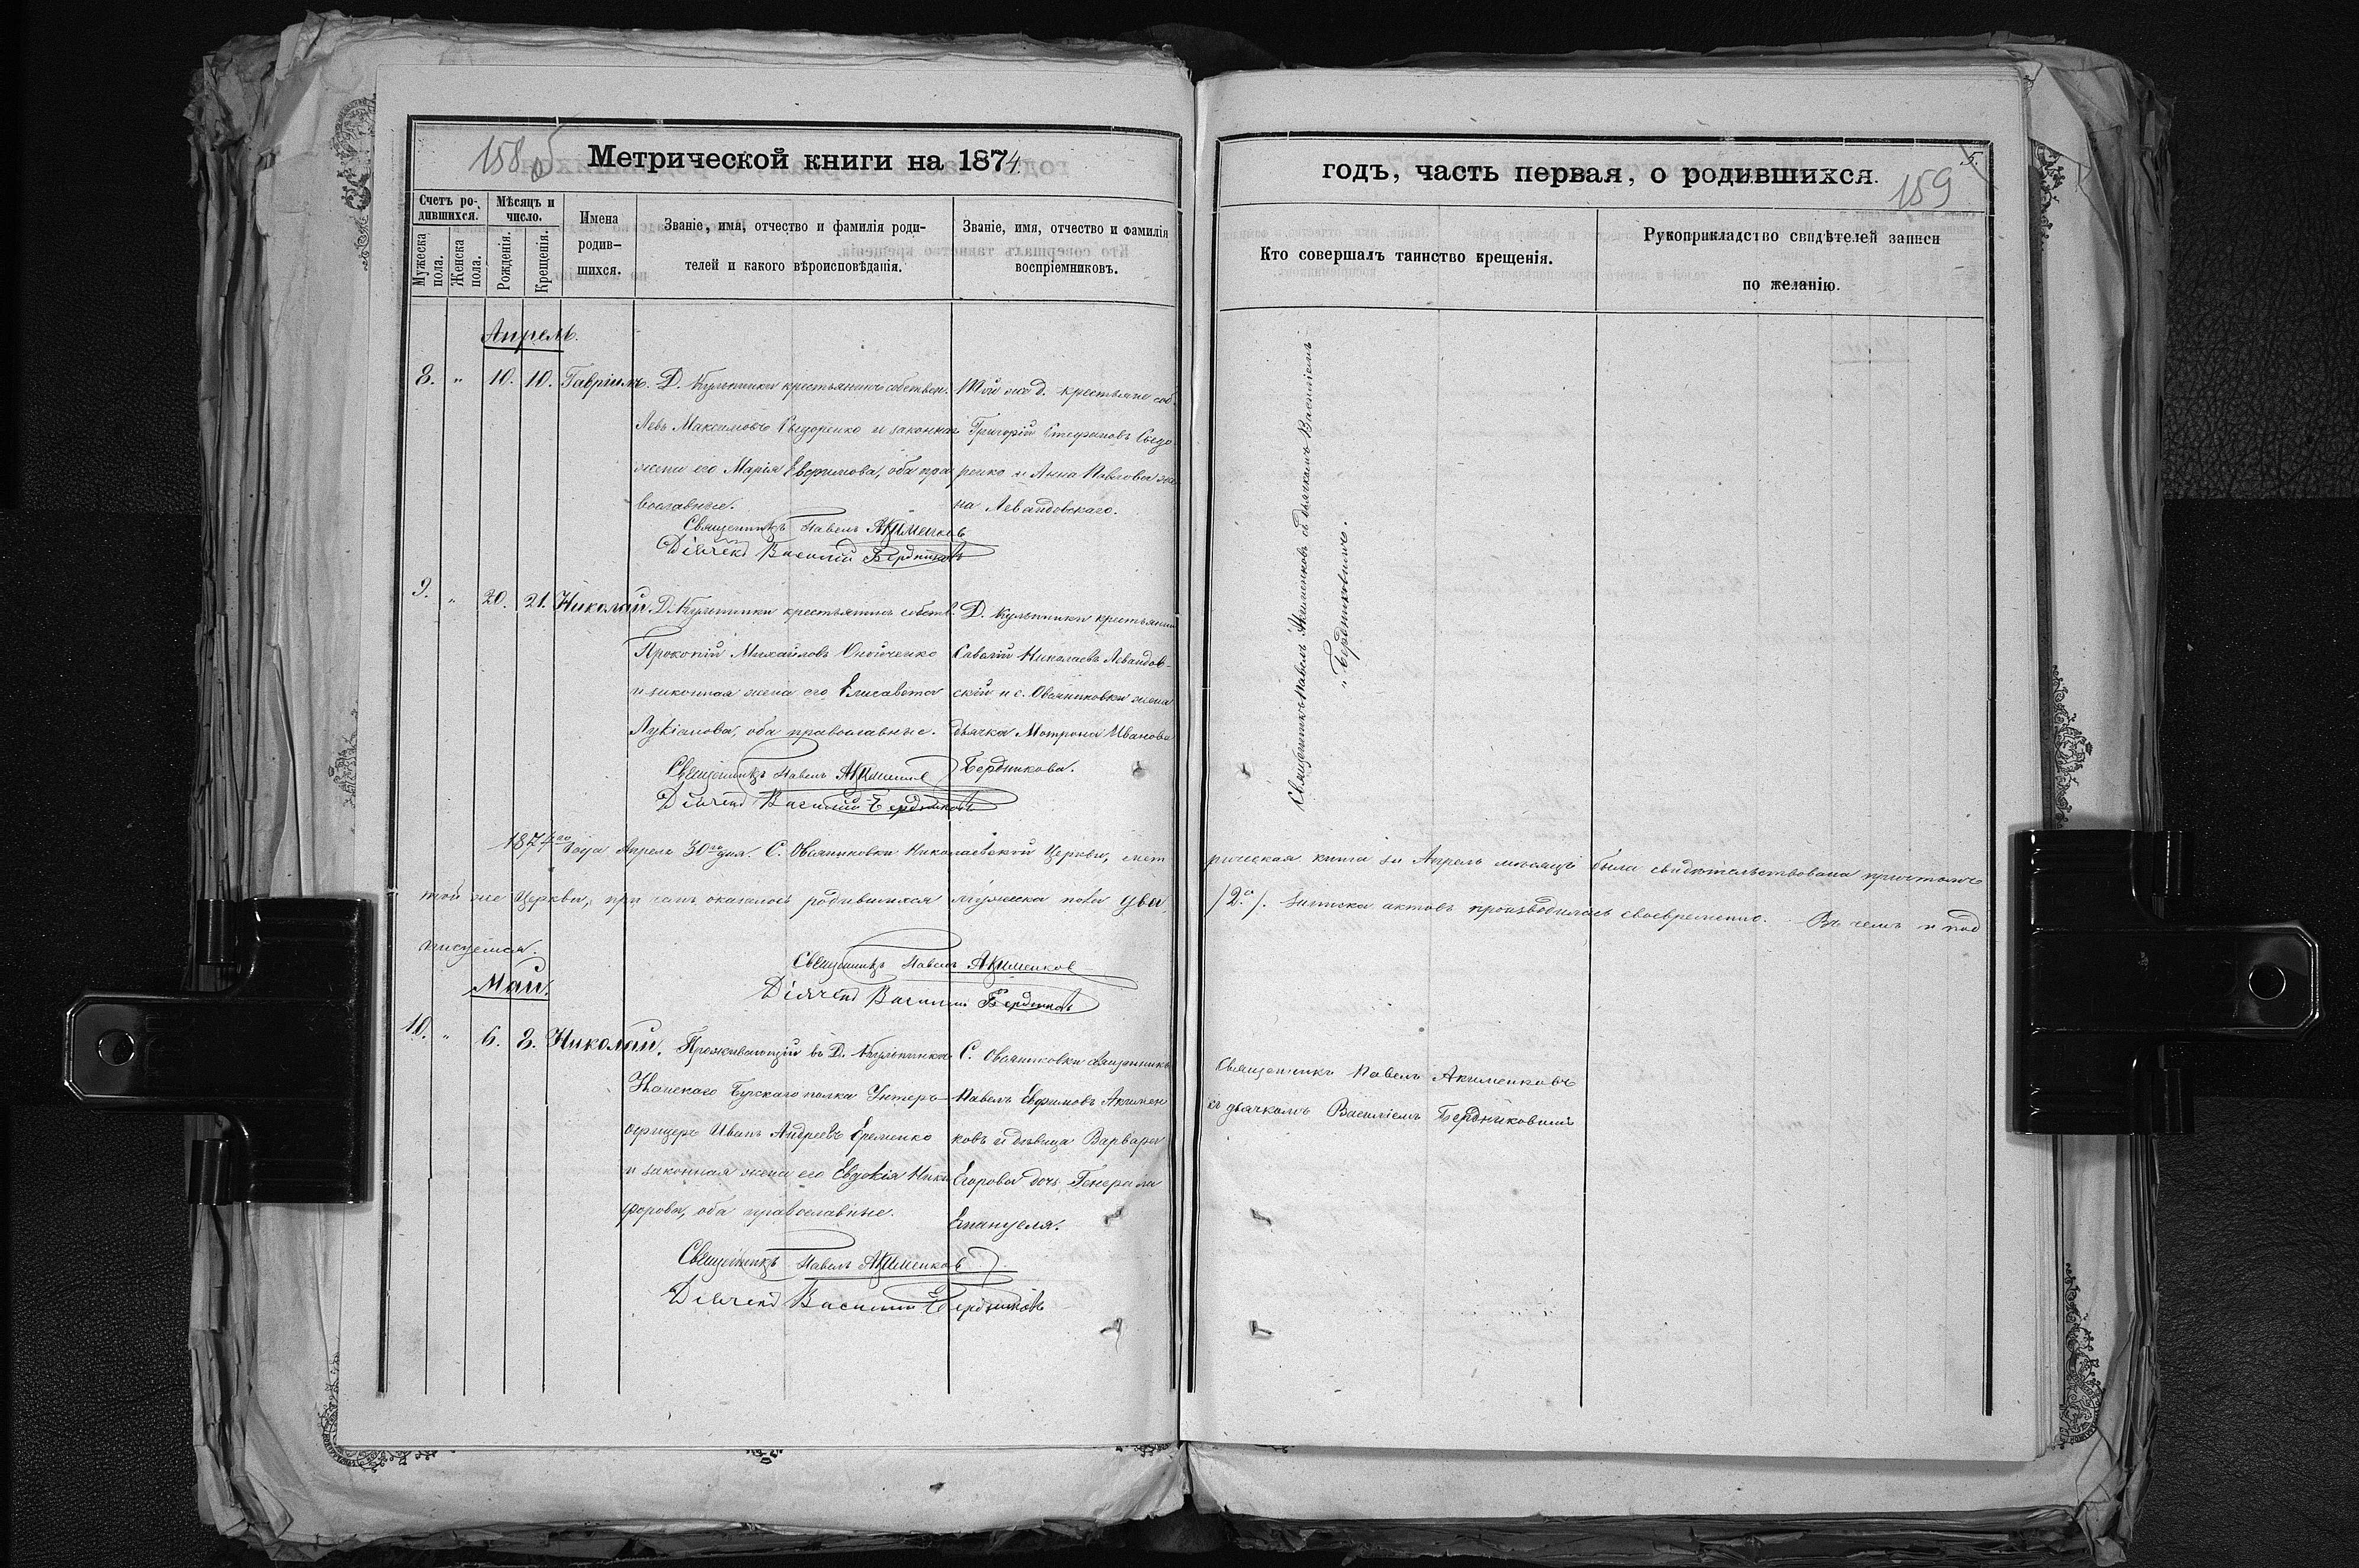 158об
Метрической книги на 1874
Счетъ родившихся.
Мѣсяцъ и число.
Имена родившихся.
Званіе, имя, отчество и фамилія родителей и какого вѣроисповѣданія.
Званіе, имя, отчество и фамилія воспріемниковъ.
Мужеска пола.
Женска пола.
Рожденія.
Крещенія.
Апрель.
8. " 10. 10. Гавріилъ.
Д. крестьянинъ собствен.
Левъ Максимовъ Сидоренко и законная
жена его Марія Евфимова, оба пра
вославные.
Той же д. крестьяне соб.
Григорій Стефановъ Сидо
ренко и Анна Павлова же
на Левандовскаго.
Священникъ Павелъ Акименковъ
Дьячекъ Василій Бердниковъ
9. " 20. 21. Николай.
Д. крестьянинъ собств.
Прокопій Михайловъ Онойченко
и законная жена его Елисавета
Лукіанова, оба православные.
Д. крестьянинъ
Савелій Николаевъ Левандов-
скій и с. Овсяниковки жена
дьячка Мотрона Иванова
Бердникова.
Священникъ Павелъ Акименковъ
Дьячекъ Василій Бердниковъ
1874го Года Апреля 30го дня. С. Овсяниковки Николаевской Церкви, мет
той же Церкви, при чемъ оказалось родившихся мужеска пола два,
писуемся.
Священникъ Павелъ Акименковъ
Дьячекъ Василій Бердниковъ
Май.
10. " 6. 8. Николай.
Проживающій въ Д.
полка Унтеръ-
офицеръ Иванъ Андреевъ Еременко
и законная жена его Евдокія Ники
форова, оба православные.
С. Овсяниковки священникъ
Павелъ Евфимовъ Акимен
ковъ и дѣвица Варвара
Егорова дочь Генерала
Емануеля.
Священникъ Павелъ Акименковъ
Дьячекъ Василій Бердниковъ
5.
159
годъ, часть первая, о родившихся.
Кто совершалъ таинство крещенія.
Рукоприкладство свидѣтелей записи
по желанію.
Священникъ Павелъ Акименковъ съ дьячкомъ Василіемъ
Бердниковымъ.
рическая книга за Апрель мѣсяцъ была свидѣтельствована причтомъ
/2./. Записка актовъ производилась своевременно. Въ чемъ и под
Священникъ Павелъ Акименковъ
съ дьячкомъ Василіемъ Бердниковымъ